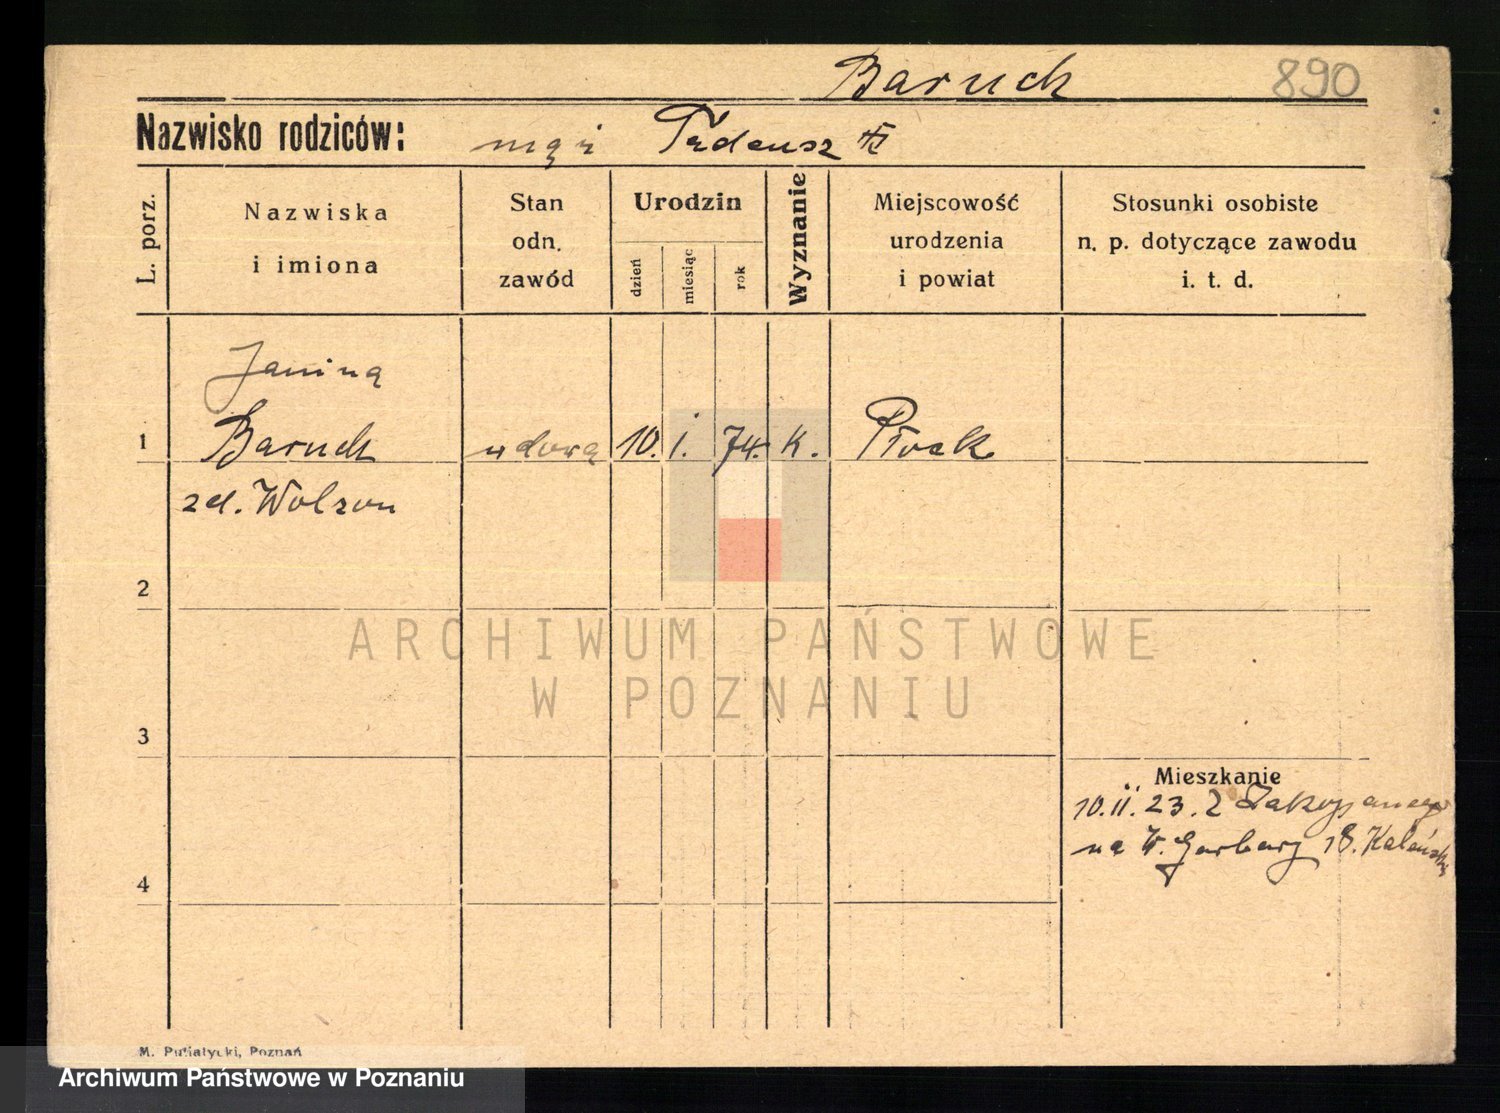 Baruch 890
Nazwisko rodziców: mąż Tadeusz
L. porz.
Nazwiska
i imiona
Stan
odn.
zawód
Urodzin
dzień
miesiąc
rok
Wyznanie
Miejscowość
urodzenia
i powiat
Stosunki osobiste
n. p. dotyczące zawodu
i. t. d.
Janina
1 Baruch wdowa 10. i. 74. k. Płock
zd. Wolzon
2
ARCHIWUM PAŃSTWOWE
W POZNANIU
3
Mieszkanie
10.ii.23. z Zakopanego
na W. Garbary 18.
4
M. Putiatycki, Poznań
Archiwum Państwowe w Poznaniu